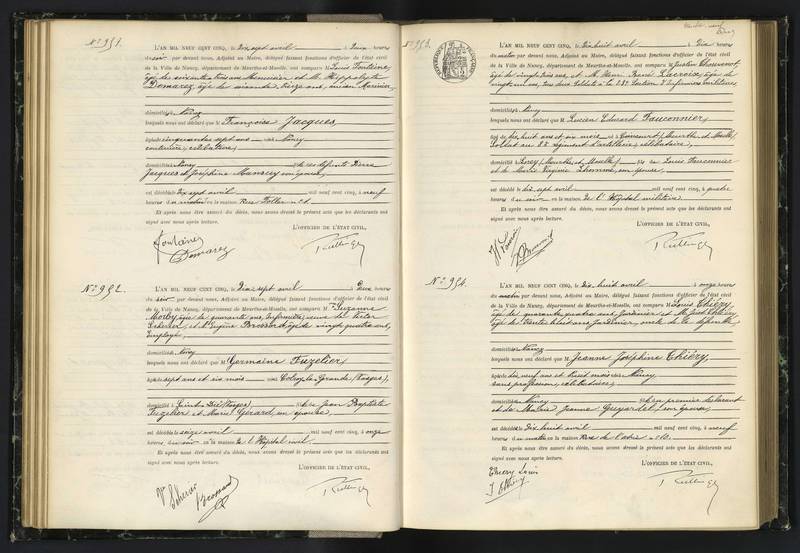 N° 951.
L'AN MIL NEUF CENT CINQ, le Dix sept avril à Deux heures
du soir par devant nous, Adjoint au Maire, délégué faisant fonctions d'officier de l'état civil
de la Ville de Nancy, département de Meurthe-et-Moselle, ont comparu M Louis Fontaine,
âgé de soixante trois ans Menuisier et M. Hippolyte
Domarez âgé de soixante treize ans, ancien
domicilié à Nancy
lesquels nous ont déclaré que M Françoise Jacques,
âgée de cinquante sept ans née Nancy
couturière, célibataire,
domiciliée à Nancy fille de défunts Pierre
Jacques et Joséphine Mansuy conjoints,
est décédée le Dix sept avril mil neuf cent cinq, à neuf
heures du matin en la maison Rue
Et après nous être assuré du décès, nous avons dressé le présent acte que les déclarants ont
signé avec nous après lecture.
L'OFFICIER DE L'ÉTAT CIVIL,
Fontaine
Domarez
N° 952.
L'AN MIL NEUF CENT CINQ, le Dix sept avril à Deux heures
du soir par devant nous, Adjoint au Maire, délégué faisant fonctions d'officier de l'état civil
de la Ville de Nancy, département de Meurthe-et-Moselle, ont comparu M Suzanne
âgée de quarante ans, Infirmière, veuve de Victor
Scherer, et Eugène Bressard âgé de vingt quatre ans,
Employé,
domicilié à Nancy
lesquels nous ont déclaré que M Germaine Fuzelier,
âgée de sept ans et six mois née Colroy la Grande (Vosges),
domiciliée à Saint Dié (Vosges) fille de Jean Baptiste
Fuzelier et Marie Gérard, son épouse,
est décédée le seize avril mil neuf cent cinq, à onze
heures du soir en la maison de l'Hôpital civil
Et après nous être assuré du décès, nous avons dressé le présent acte que les déclarants ont
signé avec nous après lecture.
L'OFFICIER DE L'ÉTAT CIVIL,
Ve Scherer
N° 953.
RÉPUBLIQUE FRANÇAISE
L'AN MIL NEUF CENT CINQ, le Dix huit avril à Dix heures
du matin par devant nous, Adjoint au Maire, délégué faisant fonctions d'officier de l'état civil
de la Ville de Nancy, département de Meurthe-et-Moselle, ont comparu M Gaston
âgé de vingt trois ans, et M. Henri René Lacroix, âgé de
vingt un ans, tous deux Soldats à la 23e Section d'Infirmiers militaires,
domiciliés à Nancy
lesquels nous ont déclaré que M Lucien Edouard Fauconnier,
âgé de dix huit ans et six mois né (Meurthe et Moselle)
soldat au 8e régiment d'artillerie, célibataire,
domicilié à (Meurthe et Moselle) fils de Louis Fauconnier
et de Marie Virginie Lhomme, son épouse,
est décédé le dix sept avril mil neuf cent cinq, à quatre
heures du soir en la maison de l'Hôpital militaire
Et après nous être assuré du décès, nous avons dressé le présent acte que les déclarants ont
signé avec nous après lecture.
L'OFFICIER DE L'ÉTAT CIVIL,
N° 954.
L'AN MIL NEUF CENT CINQ, le Dix huit avril à onze heures
du matin par devant nous, Adjoint au Maire, délégué faisant fonctions d'officier de l'état civil
de la Ville de Nancy, département de Meurthe-et-Moselle, ont comparu M Louis Thiéry,
âgé de quarante quatre ans, Jardinier et M.
âgé de trente huit ans Jardinier, oncle de la défunte,
domiciliés à Nancy
lesquels nous ont déclaré que M Jeanne Joséphine Thiéry,
âgée de dix neuf ans et huit mois née à Nancy
sans profession, célibataire,
domiciliée à Nancy fille du premier déclarant
et de Marie Jeanne son épouse,
est décédée le Dix huit avril mil neuf cent cinq, à neuf
heures du matin en la maison Rue de
Et après nous être assuré du décès, nous avons dressé le présent acte que les déclarants ont
signé avec nous après lecture.
L'OFFICIER DE L'ÉTAT CIVIL,
Thiery Louis